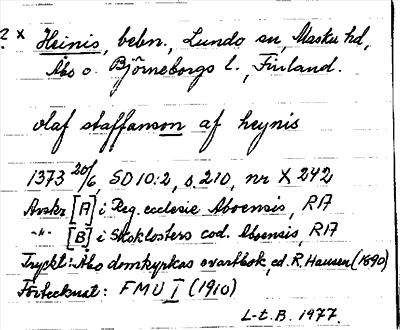 2 x Heinis, bebn., Lundo sn, Masku hd,
Åbo o. Björneborgs l., Finland.
olaf staffanson af heynis
1373 20/6, SD 10:2, s. 210, nr X 242
Avskr. [A] i Reg. ecclesie Aboensis, RA
-"- [B] i Skoklosters cod. Aboensis, RA
Tryckt: Åbo domkyrkas svartbok, ed. R. Hausen (1890)
Förtecknat: FMU I (1910)
L-t. B. 1977.